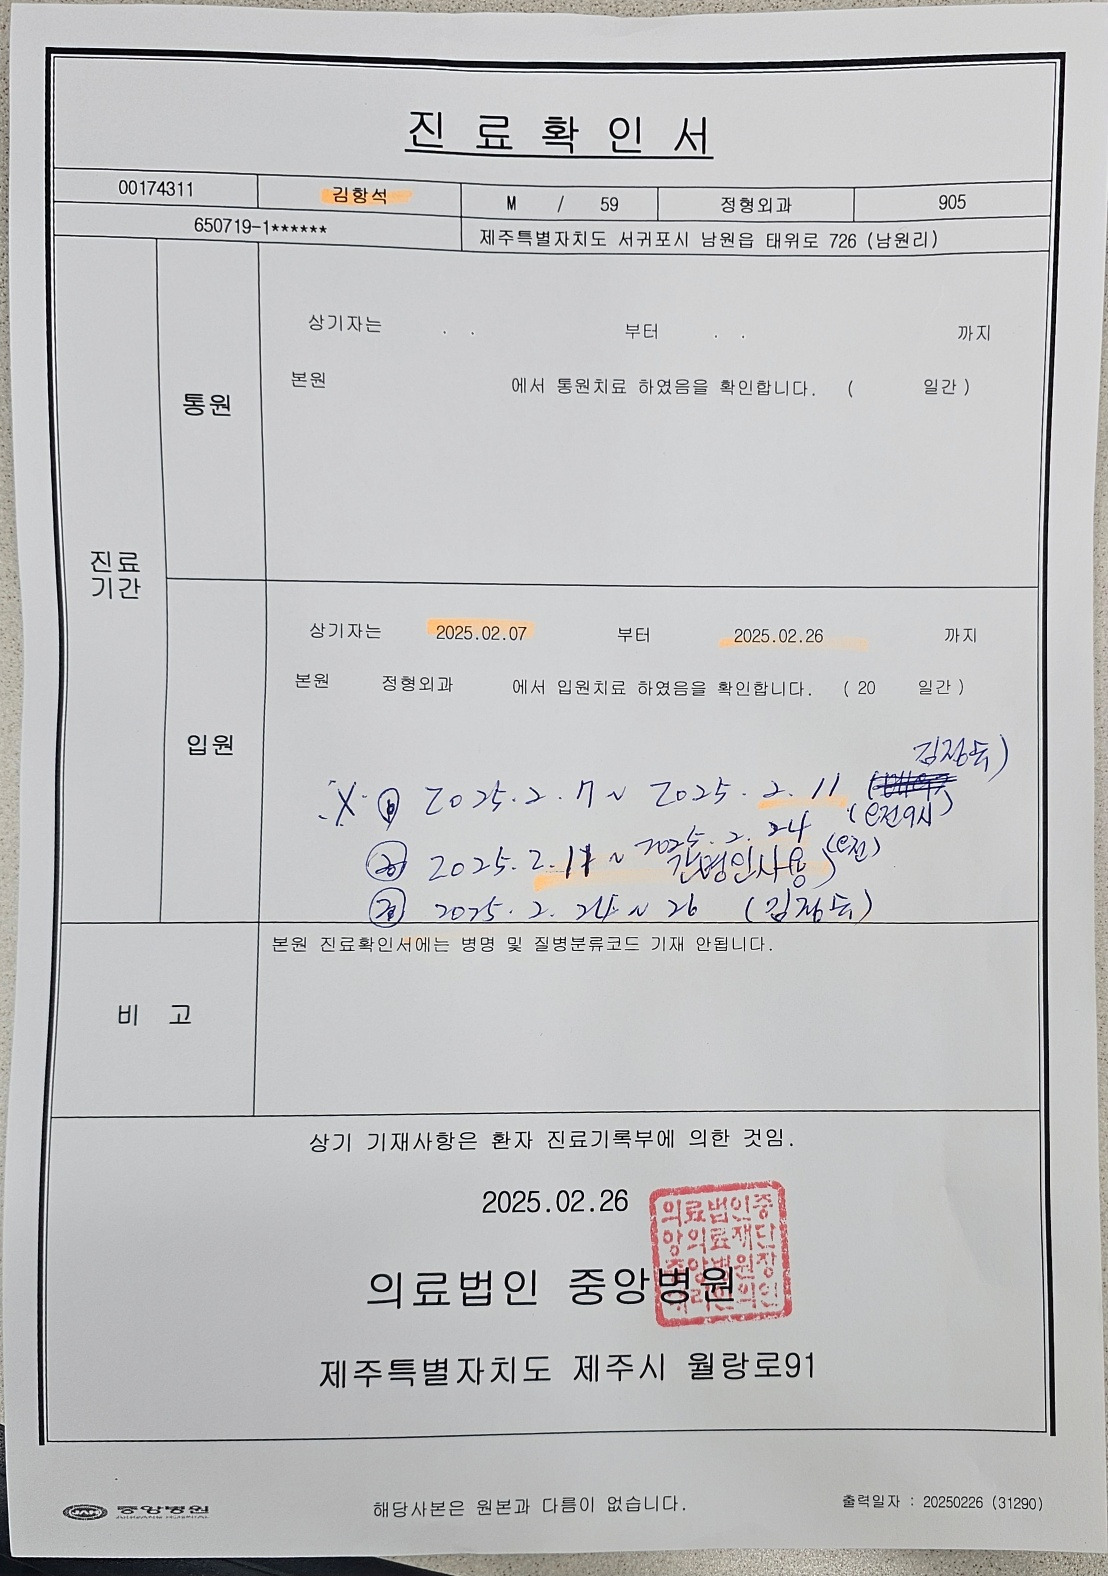 진 료 확 인 서
00174311 김항석 M / 59 정형외과 905
650719-1****** 제주특별자치도 서귀포시 남원읍 태위로 726 (남원리)
진료
기간
통원
상기자는 . . 부터 . . 까지
본원 에서 통원치료 하였음을 확인합니다. ( 일간)
입원
상기자는 2025.02.07 부터 2025.02.26 까지
본원 정형외과 에서 입원치료 하였음을 확인합니다. ( 20 일간)
2025.2.7~ 2025.2.11
(오전9시)
2025.2.11 ~ 2025.2.24 (오전)
간병인사용)
2025.2.24~26
비 고
본원 진료확인서에는 병명 및 질병분류코드 기재 안됩니다.
상기 기재사항은 환자 진료기록부에 의한 것임.
2025.02.26
의료법인 중앙병원
의료법인중
앙의료재단
중앙병원장
제주특별자치도 제주시 월랑로91
중앙병원
해당사본은 원본과 다름이 없습니다.
출력일자 : 20250226 (31290)